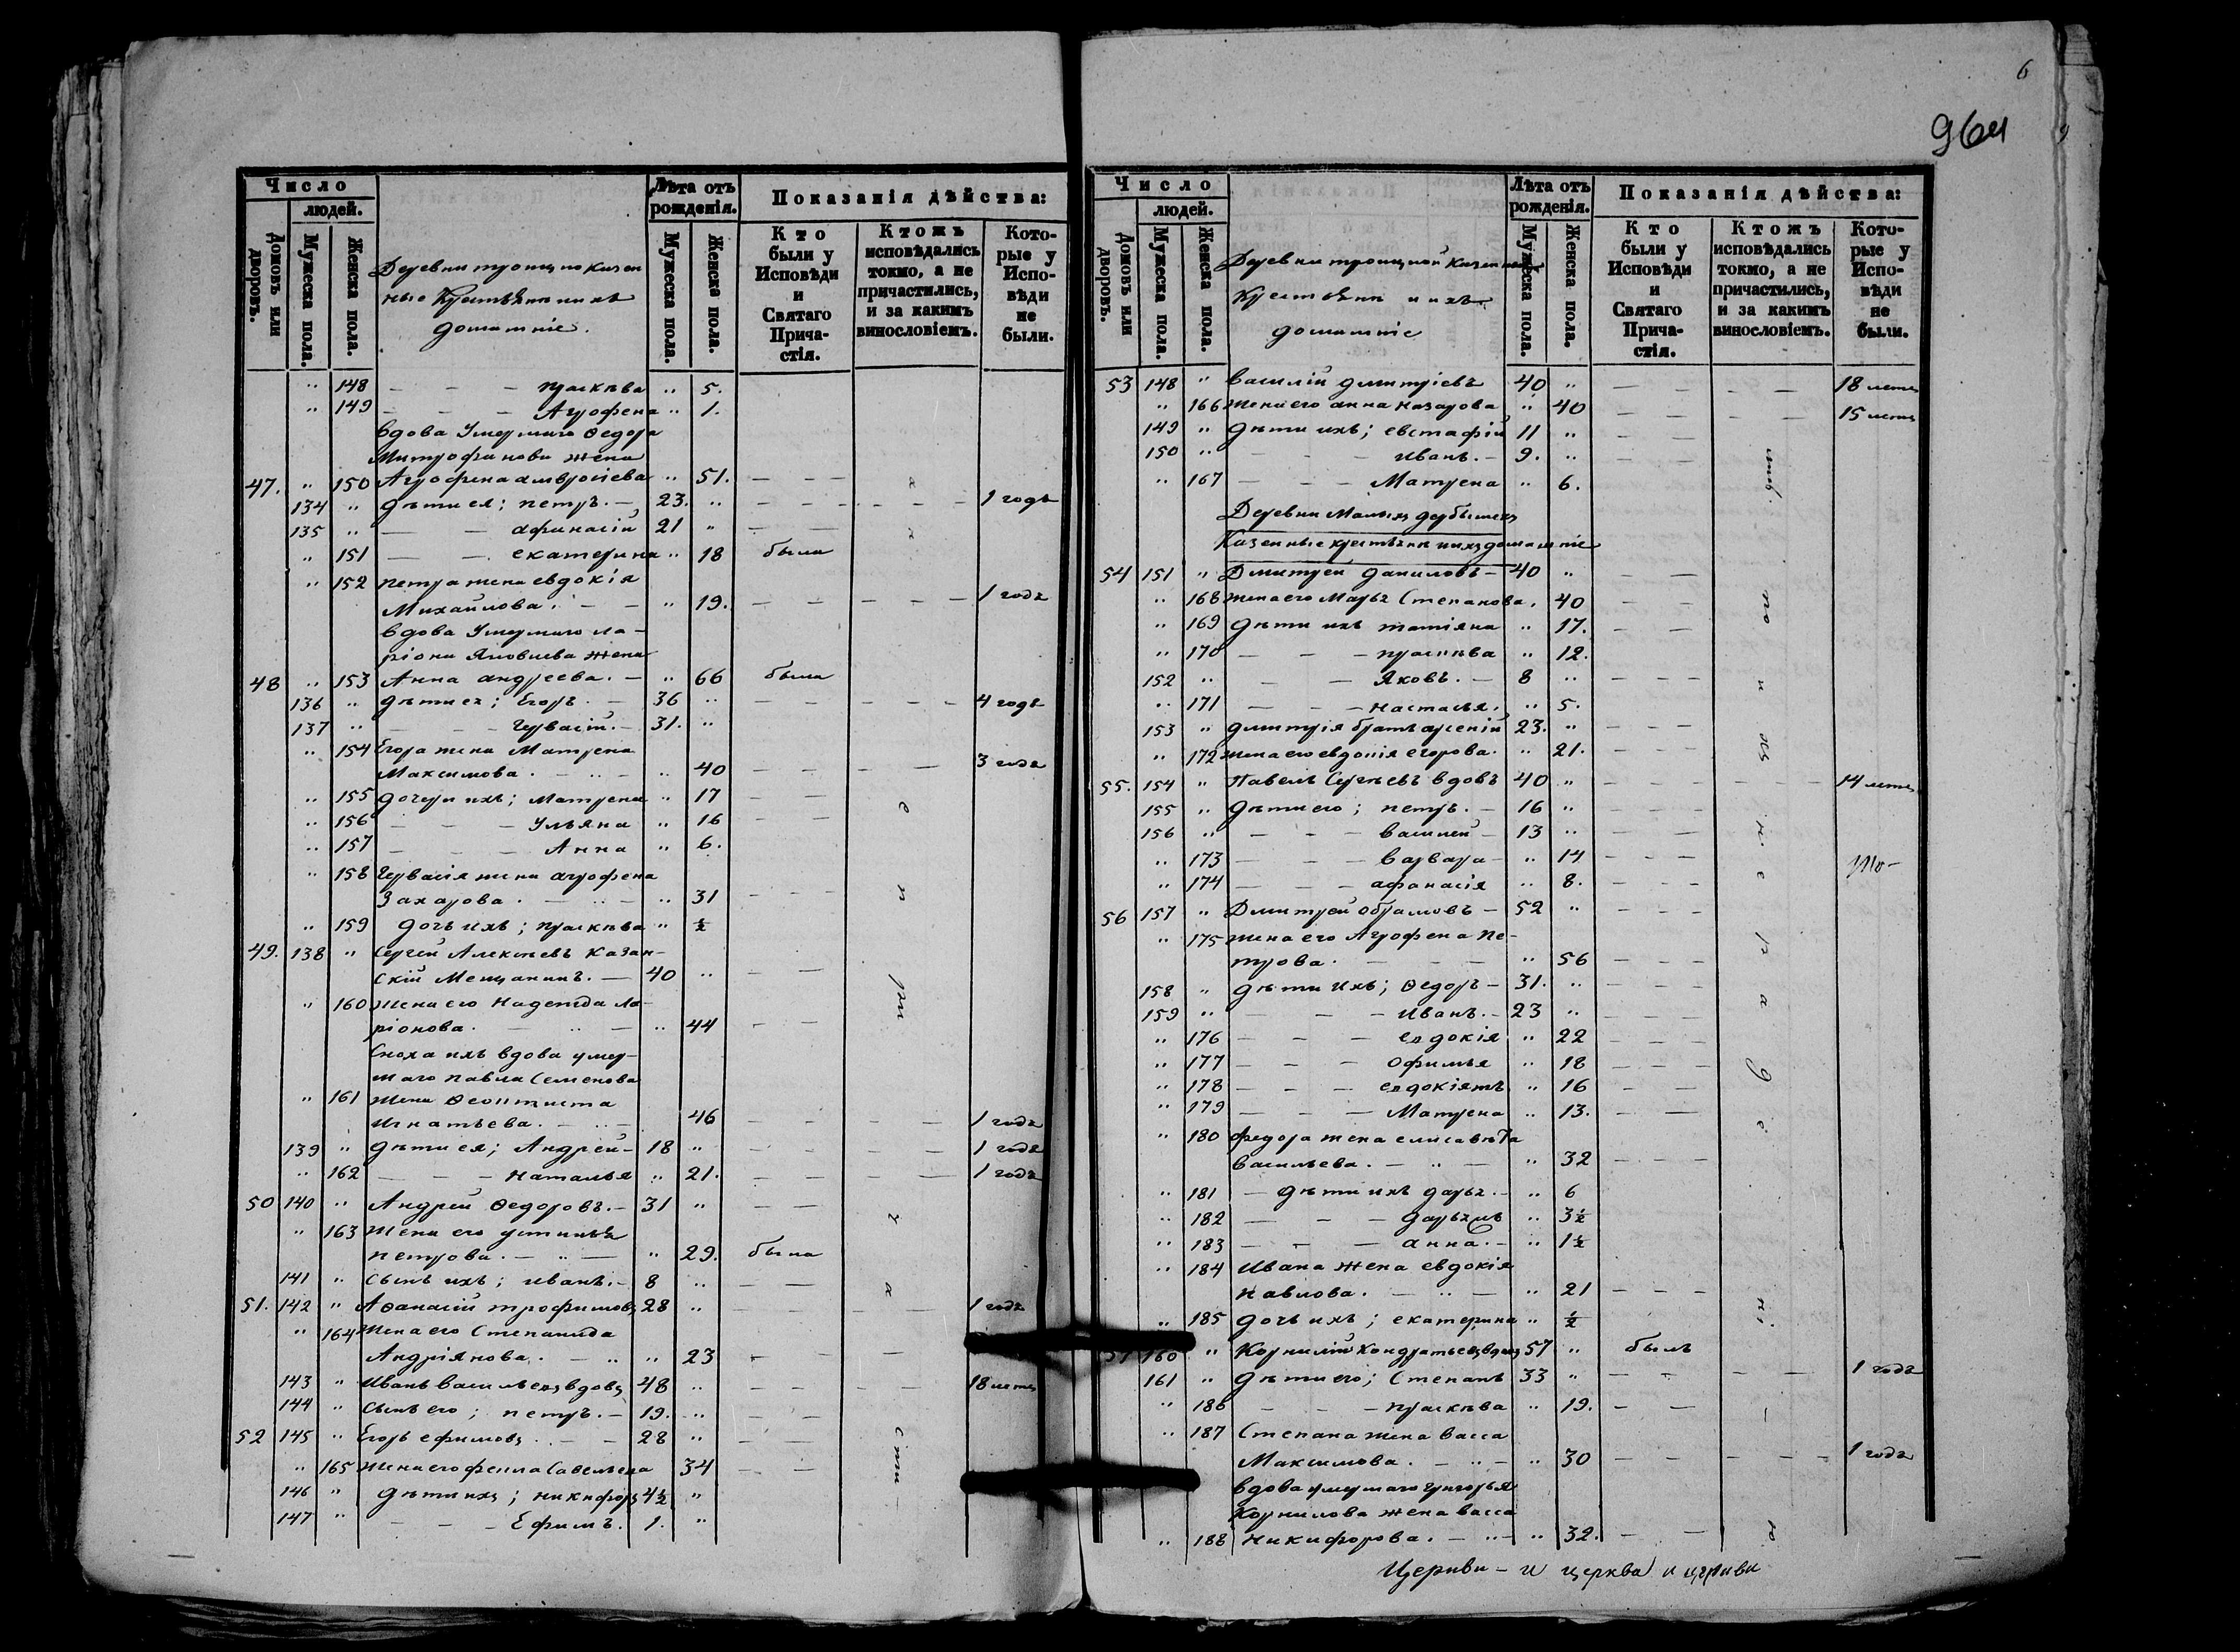 6
964
Число
людей.
Домовъ или дворовъ.
Мужеска пола.
Женска пола.
Деревни троицко казен
ные Крестьяне и ихъ
домашніе.
Лѣта отъ рожденія.
Мужеска пола.
Женска пола.
Показанія дѣйства:
Кто были у Исповѣди и Святаго Прича-стія.
Ктожъ исповѣдались токмо, а не причастились, и за какимъ винословіемъ.
Кото-рые у Испо-вѣди не были.
" 148 — — — праскѣва " 5.
" 149 — — — Агрофена " 1.
Вдова Умершаго Ѳедора
Митрофанова жена
47. " 150 Агрофена амвросіева " 51. — — —
134 " дѣти ея; петръ. — 23. " — — — 1 годъ
135 " — — афанасій 21 " — —
" 151 — — екатерина " 18 была
" 152 петра жена евдокія
Михайлова. — — " 19. — — — 1 годъ
вдова Умершаго ла-
ріона Яковлева жена
48 " 153 Анна андреева. — " 66 была
136 " дѣти ея; Егоръ. — 36 " — — — 4 годъ
137 " — — Гервасій. — 31. "
" 154 Егора жена Матрена
Максимова. — " — " 40 — — — 3 года
" 155 дочери ихъ; Матрена " 17 — —
" 156 — — — Ульяна " 16 — —
" 157 — — — Анна " 6.
" 158 Гервасія жена агрофена
Захарова. — " — " 31 — — —
" 159 дочь ихъ; праскѣва " ½
49. 138 " Сергей Алексѣевъ Казан-
скій Мещанинъ. — 40 " — —
" 160 жена его Надежда ла-
ріонова. — " — " 44 — —
Сноха ихъ вдова умер-
шаго павла Семенова
" 161 жена Ѳеоктиста
Игнатьева. — " — 46 — — — 1 годъ
139 " дѣти ея; Андрей — 18 " — — — 1 годъ
" 162 — — — наталья " 21. — — — 1 годъ
50 140 " Андрей Ѳедоровъ. — 31 " — —
" 163 Жена его устинья
петрова. — " — " 29. была
141 " сынъ ихъ; иванъ. — 8 " — —
51. 142 " Аѳанасій трофимовъ 28 " — — — 1 годъ
" 164 Жена его Степанида
Андріянова. — " " 23 — — —
143 " Иванъ васильевъ вдовъ 48 " — — — 18 летъ
144 " сынъ его; петръ. — 19. " — —
52 145 " Егоръ ефимовъ. — — 28 " — —
" 165 Жена его фекла Савельева 34 — —
146 " дѣти ихъ; никифоръ 4½ "
147 " — — — Ефимъ. 1. "
Число
людей.
Домовъ или дворовъ.
Мужеска пола.
Женска пола.
Деревни троицкой казенные
Крестьяне и ихъ
домашніе
Лѣта отъ рожденія.
Мужеска пола.
Женска пола.
Показанія дѣйства:
Кто были у Исповѣди и Святаго Прича-стія.
Ктожъ исповѣдались токмо, а не причастились, и за какимъ винословіемъ.
Кото-рые у Испо-вѣди не были.
53 148 " Василій дмитріевъ 40 " — — — 18 летъ
" 166 Жена его анна назарова " 40 — — — 15 летъ
149 " дѣти ихъ; евстафій 11 " — —
150 " — — — иванъ. — 9. " — —
" 167 — — — Матрена " 6.
Деревни Малыхъ дербышекъ
Казенные крестьяне и ихъ домашніе
54 151 " Дмитрей даниловъ — 40 " — —
" 168 жена его Марья Степанова. 40 — —
" 169 дѣти ихъ татіяна " 17. — —
" 170 — — — праскѣва " 12.
152 " — — Яковъ. — 8 "
" 171 — — — настасья. " 5.
153 " дмитрія братъ арсеній 23. " — —
" 172 жена его евдокія егорова. " 21. — — —
55. 154 " Павелъ Сергѣевъ вдовъ 40 " — — — 14 летъ
155 " дѣти его; петръ. — 16 " — — —
156 " — — — василей — 13 " — —
" 173 — — — варвара — " 14 — — —
" 174 — — — афанасія " 8. — — —
56 157 " Дмитрей обрамовъ — 52 " — — —
" 175 жена его Агрофена пе-
трова. — — — " 56 — — —
158 " дѣти ихъ; Ѳедоръ — 31. " — — —
159 " — — — иванъ. — 23 " — — —
" 176 — — — евдокія " 22 — — —
" 177 — — — офимья " 18 — — —
" 178 — — — евдокіятъ " 16 — — —
" 179 — — — Матрена " 13. — —
" 180 федора жена елисавѣта
васильева. — " — " 32 — — —
" 181 — дѣти ихъ дарья. — " 6
" 182 — — — " 3½
" 183 — — — анна. — " 1½
" 184 Ивана жена евдокія
павлова. — " — " 21 — — —
" 185 дочь ихъ; екатерина " ½
57 160 " Корнилій Кондратьевъ вдовъ 57 " былъ
161 " дѣти его; Степанъ 33 " — — — 1 годъ
" 186 — — — праскѣва " 19. — —
" 187 Степана жена васса
Максимова. — " — " 30 — — — 1 годъ
вдова умершаго григорья
Корнилова жена васса
" 188 никифорова. — " — " 32. — —
Церкви — и церква и церкви